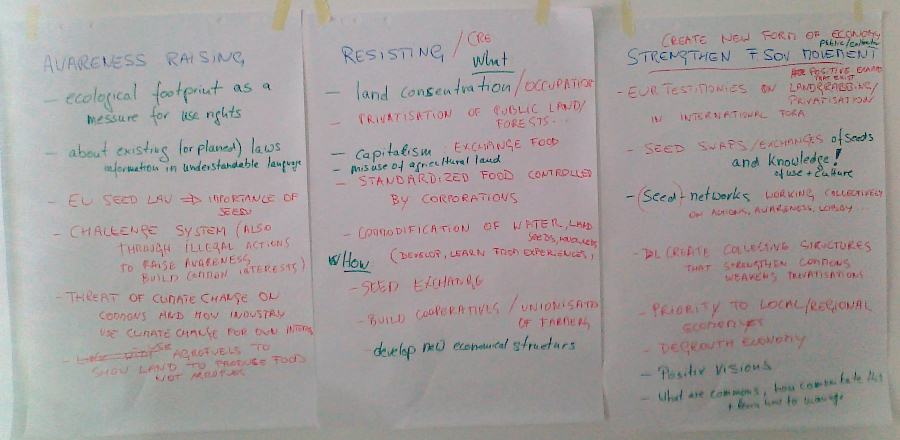 AWARENESS RAISING
- ecological footprint as a
messure for use rights
- about existing (or planed) laws
information in understandable language
- EU SEED LAW => IMPORTANCE OF
SEEDS
- CHALLENGE SYSTEM (ALSO
THROUGH ILLEGAL ACTIONS
TO RAISE AWARENESS,
BUILD COMMON INTERESTS)
- THREAT OF CLIMATE CHANGE ON
COMMONS AND HOW INDUSTRY
USE CLIMATE CHANGE FOR OWN
- USE AGROFUELS TO
SHOW LAND TO PRODUCE FOOD
NOT AGROFUEL
RESISTING / CRE
What
- land consentration/OCCUPATION
- PRIVATISATION OF PUBLIC LAND/
FORESTS...
- Capitalism: EXCHANGE FOOD
- misuse of agricultural land
- STANDARDIZED FOOD CONTROLLED
BY CORPORATIONS
- COMMODIFICATION OF WATER, LAND
SEEDS,
HOW (DEVELOP, LEARN FROM EXPERIENCES,
- SEED EXCHANGE
- BUILD COOPERATIVES / UNIONISATIO
OF FARMERS
- develop new economical structurs
CREATE NEW FORM OF ECONOMY
STRENGTHEN F. SOV MOVEMENT
POSITIVE
THAT EXIST
- EUR TESTIMONIES ON LANDGRABBING/
PRIVATISATION
IN INTERNATIONAL FORA
- SEED SWAPS/EXCHANGES of Seeds
and knowledge!
of use + culture
- (Seed)-networks WORKING COLLECTIVELY
ON ACTIONS, AWARENESS, LOBBY...
- CREATE COLLECTIVE STRUCTURES
THAT STRENGTHEN COMMONS
WEAKENS PRIVATISATION
- PRIORITY TO LOCAL/REGIONAL
ECONOMYES
- DEGROWTH ECONOMY
- Positiv visions
- What are commons, how this
+ learn how to manage